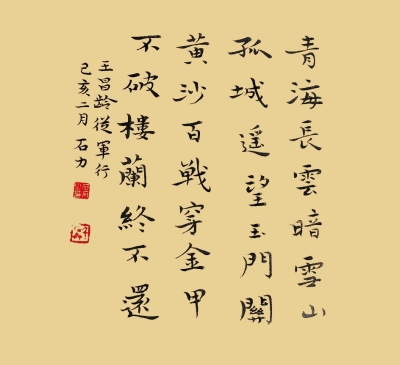 青海長雲暗雪山
孤城遥望玉門關
黄沙百戦穿金甲
不破樓蘭終不還
王昌龄從軍行
己亥二月石力